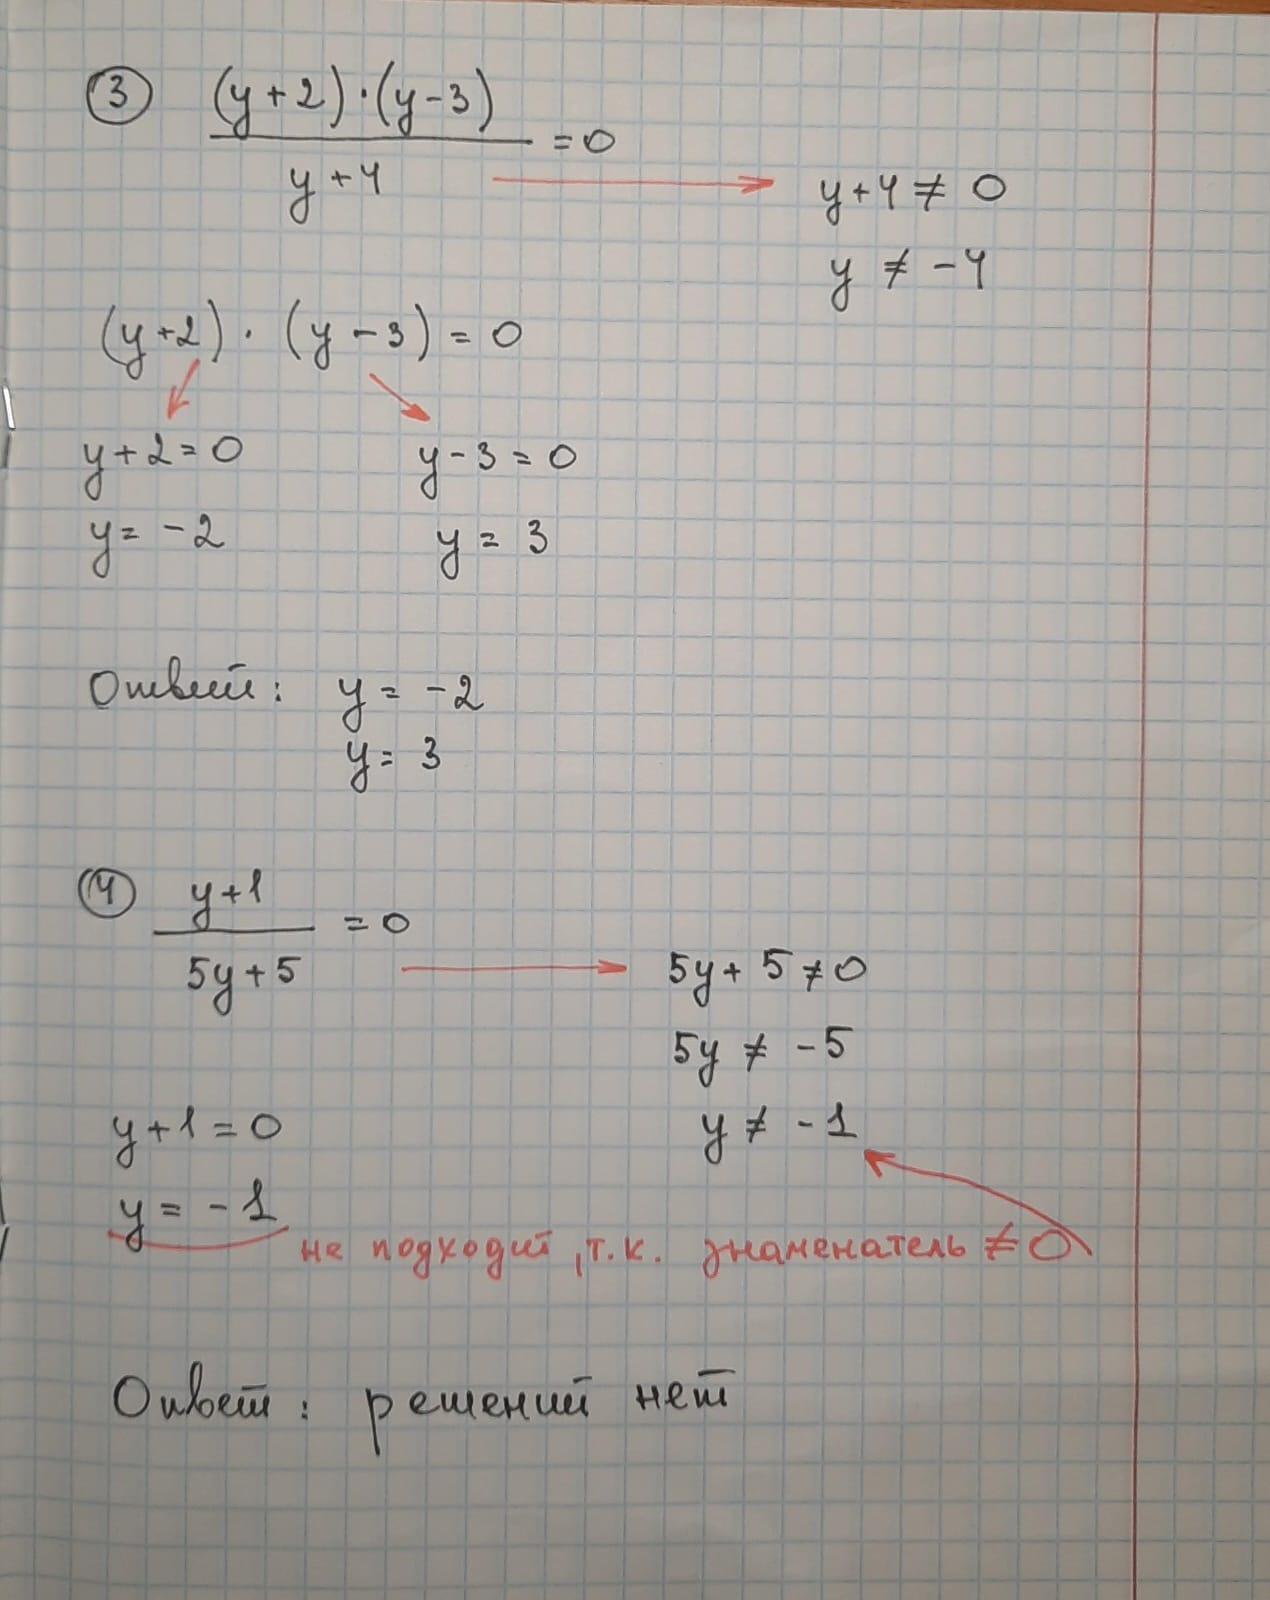 ③ (y+2)·(y-3)
= 0
y+4
y+4 ≠ 0
y ≠ -4
(y+2) · (y-3) = 0
y+2=0 y-3=0
y= -2 y = 3
Ответ: y = -2
y= 3
④ y+1
= 0
5y+5
5y+5≠0
5y ≠ -5
y+1=0 y ≠ -1
y = -1
не подходит, т.к. знаменатель ≠ 0
Ответ: решений нет